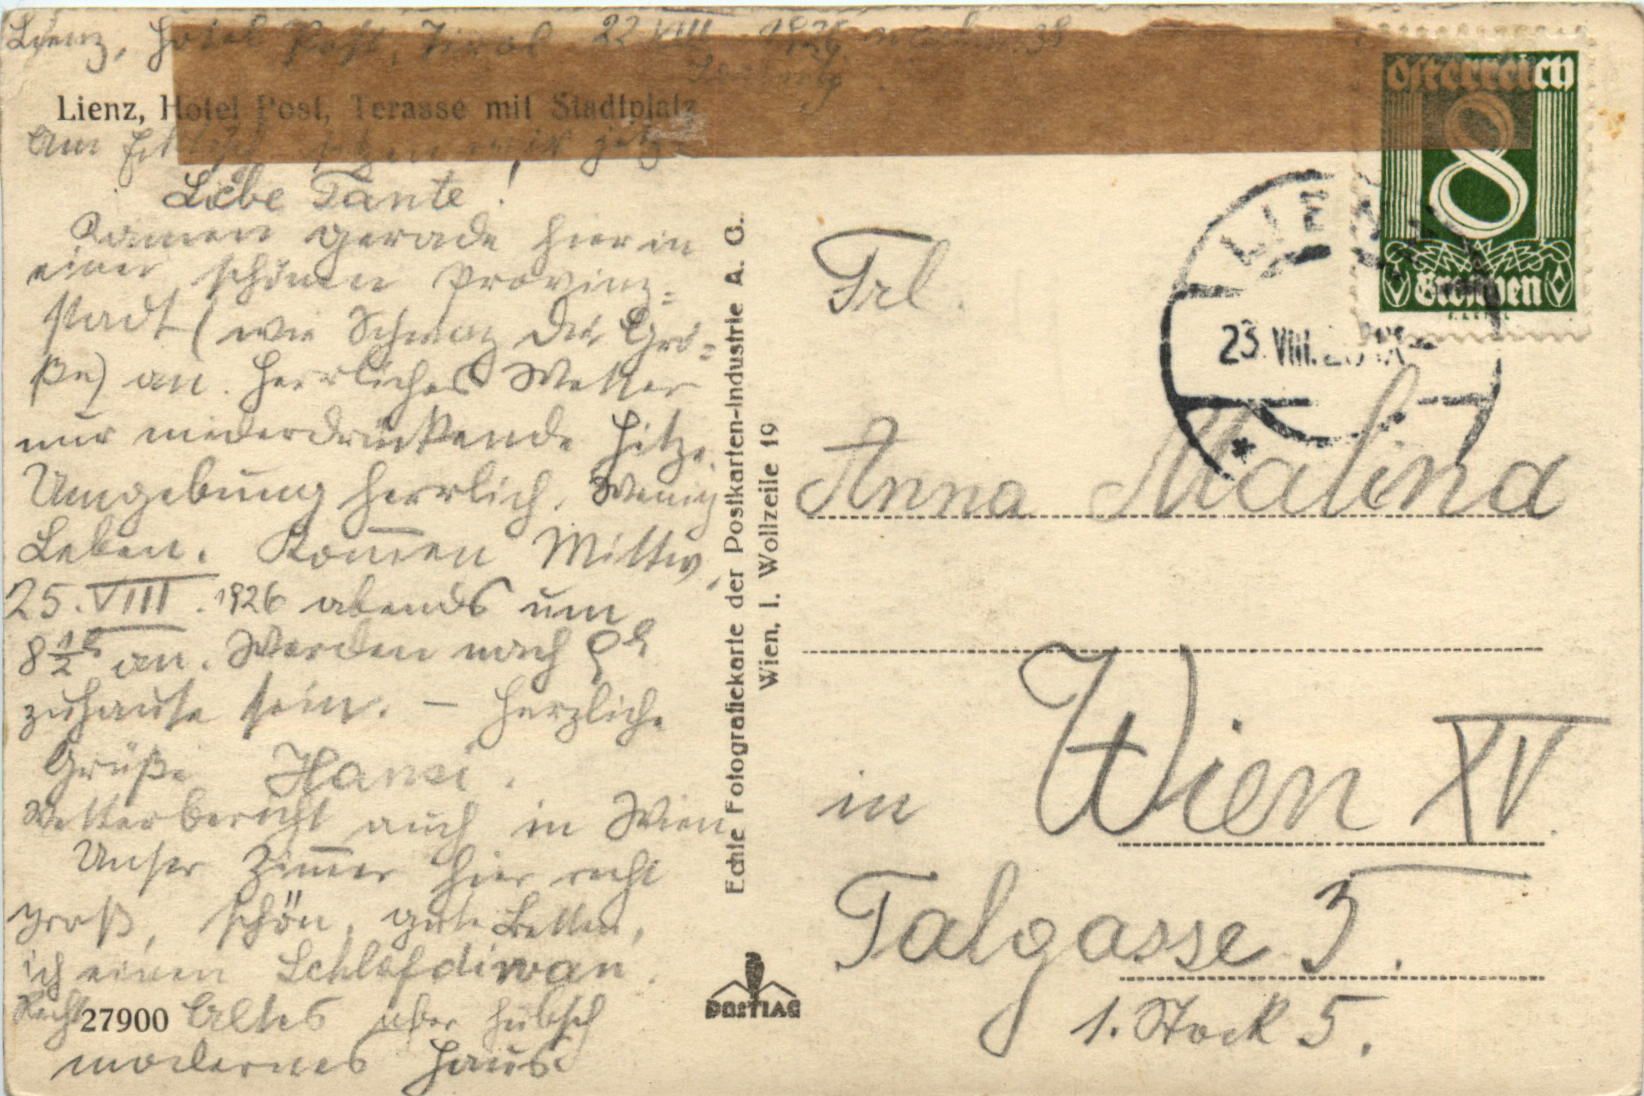 Lienz, Hotel Post, Tirol 22 VIII 1926
Lienz, Hotel Post, Terasse mit Stadtplatz
Am sitzen wir jetzt
Liebe Tante!
Kamen gerade hier in
einer schönen Provinz=
stadt (wie Schwaz die Grö=
ße) an. Herrliches Wetter
nur niederdrückende Hitze.
Umgebung herrlich. Wenig
Leben. Kommen Mittw,
25. VIII. 1926 abends um
8 1/2 h an. Werden nach 9h
zuhause sein. – Herzliche
Grüße Hansi.
Wetterbericht auch in Wien
Unser Zimmer hier recht
groß, schön, gute Betten,
ich einen Schlafdiwan.
Recht altes aber hübsch
modernes Haus
27900
Echte Fotografiekarte der Postkarten-Industrie A. G.
Wien, I. Wollzeile 19
POSTIAG
Österreich
8
Groschen
LIENZ
23. VIII. 26
Frl.
Anna Malina
in Wien XV.
Talgasse 3.
1. Stock 5.